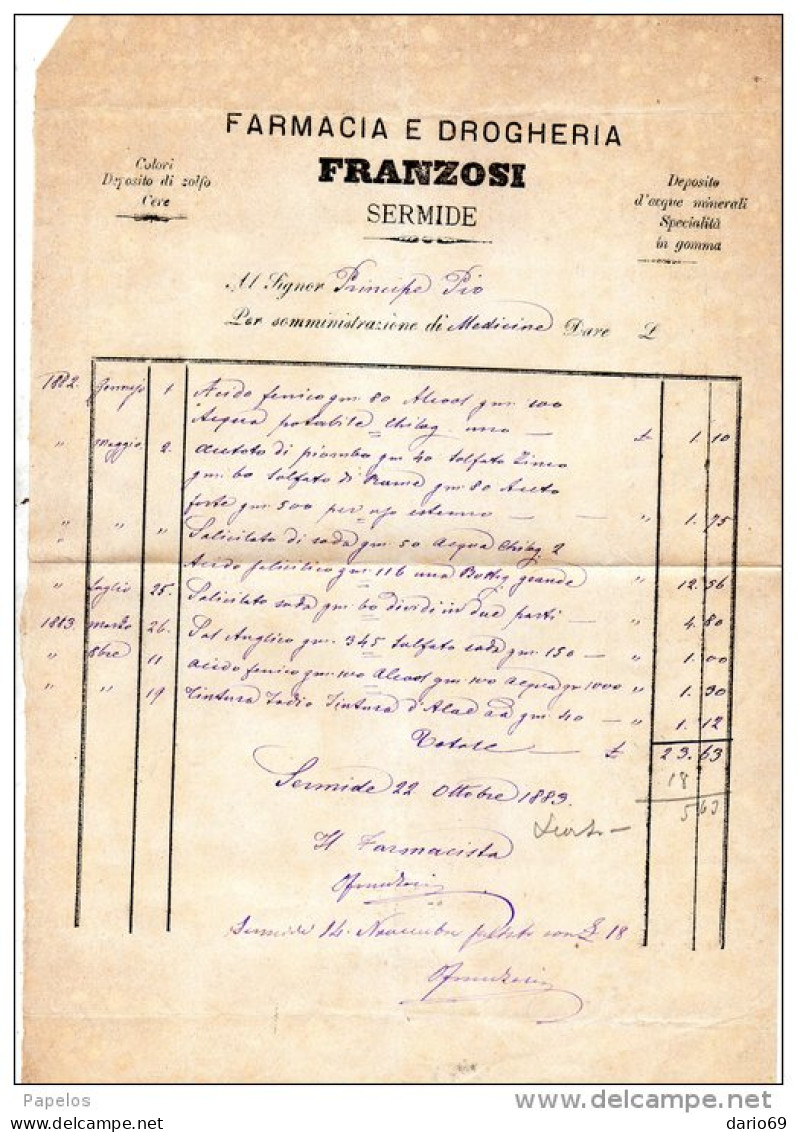 FARMACIA E DROGHERIA
FRANZOSI
SERMIDE
Colori
Deposito di zolfo
Cere
Deposito
d'acque minerali
Specialità
in gomma
Al Signor Principe Pio
Per somministrazione di Medicine Dare L
1882. Gennajo 1. Acido fenico gm. 80 Alcool gm. 100
Acqua potabile Chilog. uno — £ 1.10
" Maggio. 2. acetato di piombo gm. 40 Solfato Zinco
gm. 60 Solfato di Rame gm. 80 Aceto
forte gm. 500 per uso esterno — — " 1.75
" " " Salicilato di soda gm. 50 Acqua Chilog 2
Acido gm. 116 una Bottig grande " 12.56
" luglio 25. Salicilato soda gm. 60 dividi in due parti — " 4.80
1883. Marzo 26. Sal Anglico gm. 345 Solfato soda gm. 150 — " 1.00
" 8bre 11 acido fenico gm. 100 Alcool gm. 100 acqua gm 1000 " 1.30
" " 19 Tintura Iodio Tintura d'Aloe aa gm. 40 — " 1.12
Totale — £ 23.63
18
5 63
Sermide 22 Ottobre 1883.
Il Farmacista
Franzosi
Sermide 14. Novembre con £ 18
Franzosi
Papelos
delcampe.net
dario69